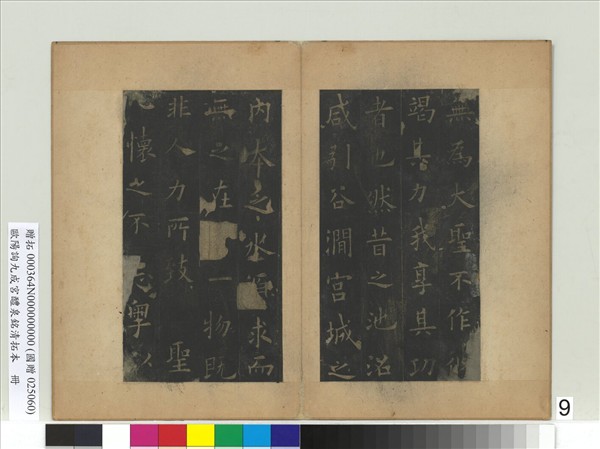 無為大聖不作彼
竭其力我享其功
者也然昔之池沼
咸引谷澗宮城之
內本乏水源求而
無之在一物既
非人力所致 聖
懷之不忘粵以
贈拓 000364N000000000 (國贈 025060)
歐陽詢九成宮醴泉銘清拓本 冊
9